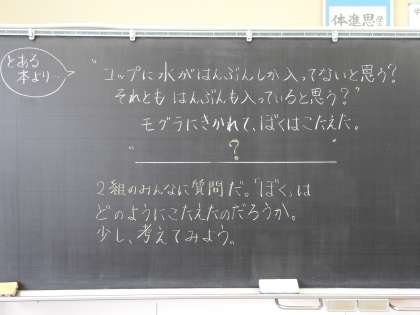 体進思学
とある
本より…
"コップに水がはんぶんしか入ってないと思う?
それとも はんぶんも入っていると思う?"
モグラにきかれて、ぼくはこたえた。
" ? "
2組のみんなに質問だ。「ぼく」は
どのようにこたえたのだろうか。
少し、考えてみよう。